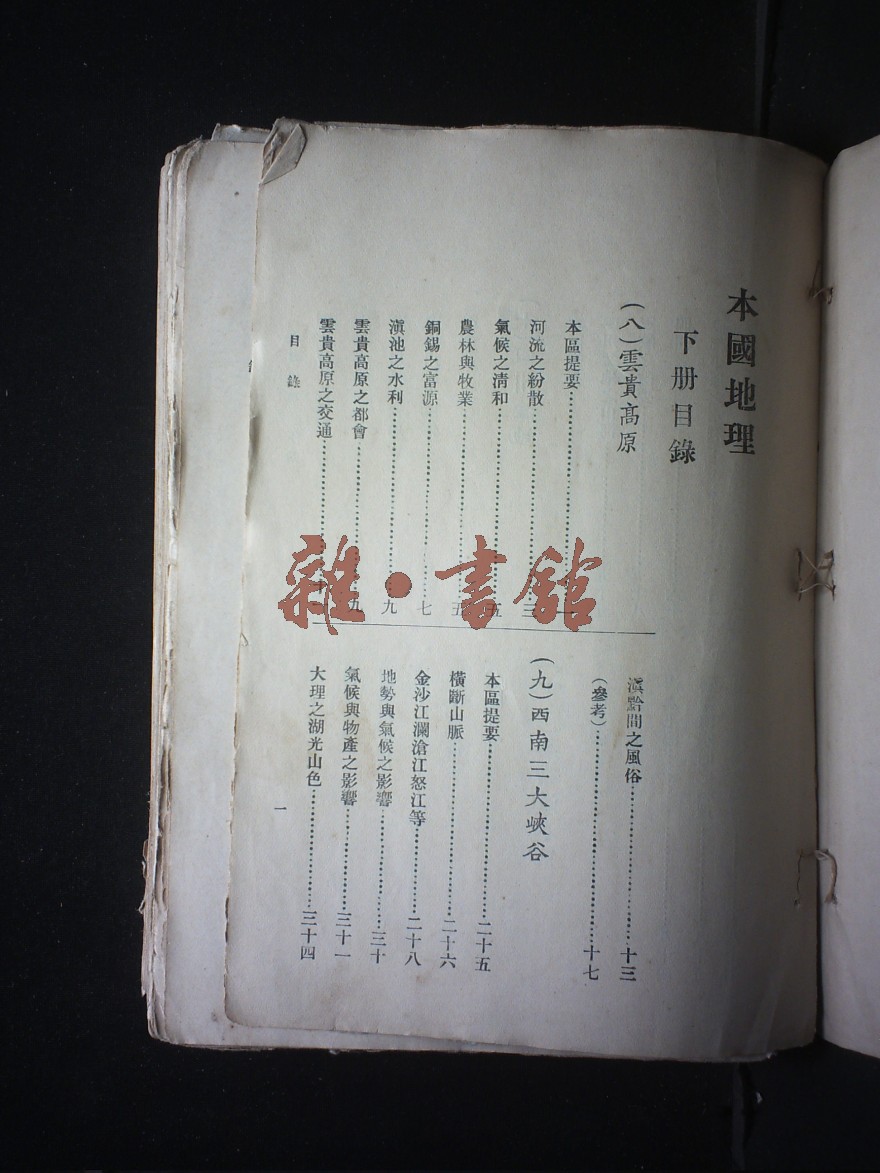 本國地理
下册目錄
(八)雲貴高原
本區提要……一
河流之紛散……三
氣候之清和……五
農林與牧業……五
銅錫之富源……七
滇池之水利……九
雲貴高原之都會……九
雲貴高原之交通……十
滇黔間之風俗……十三
(參考)……十七
(九)西南三大峽谷
本區提要……二十五
橫斷山脈……二十六
金沙江瀾滄江怒江等……二十八
地勢與氣候之影響……三十
氣候與物產之影響……三十一
大理之湖光山色……三十四
目錄
一
雜·書館